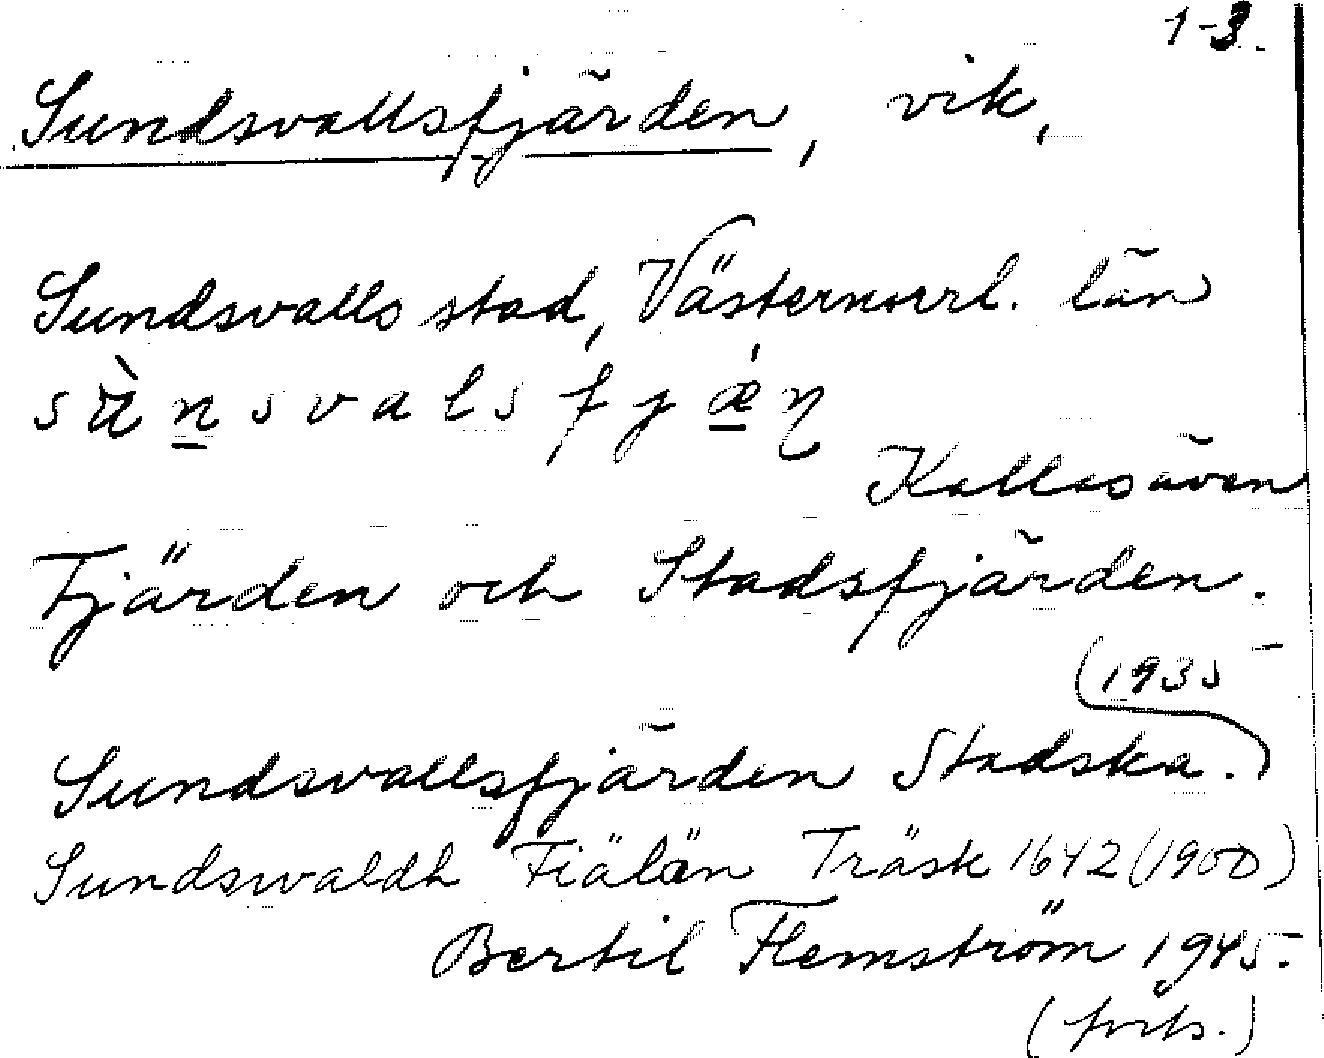 1-3.
Sundsvallsfjärden, vik,
Sundsvalls stad, Västernorrl. län
sǜnsvalsfjǽn
Kallas även
Fjärden och Stadsfjärden.
(1935
Sundsvallsfjärden Stadska.)
Sundswaldh Fiälän Träsk 1642 (1900)
Bertil Flemström 1945.
(forts.)